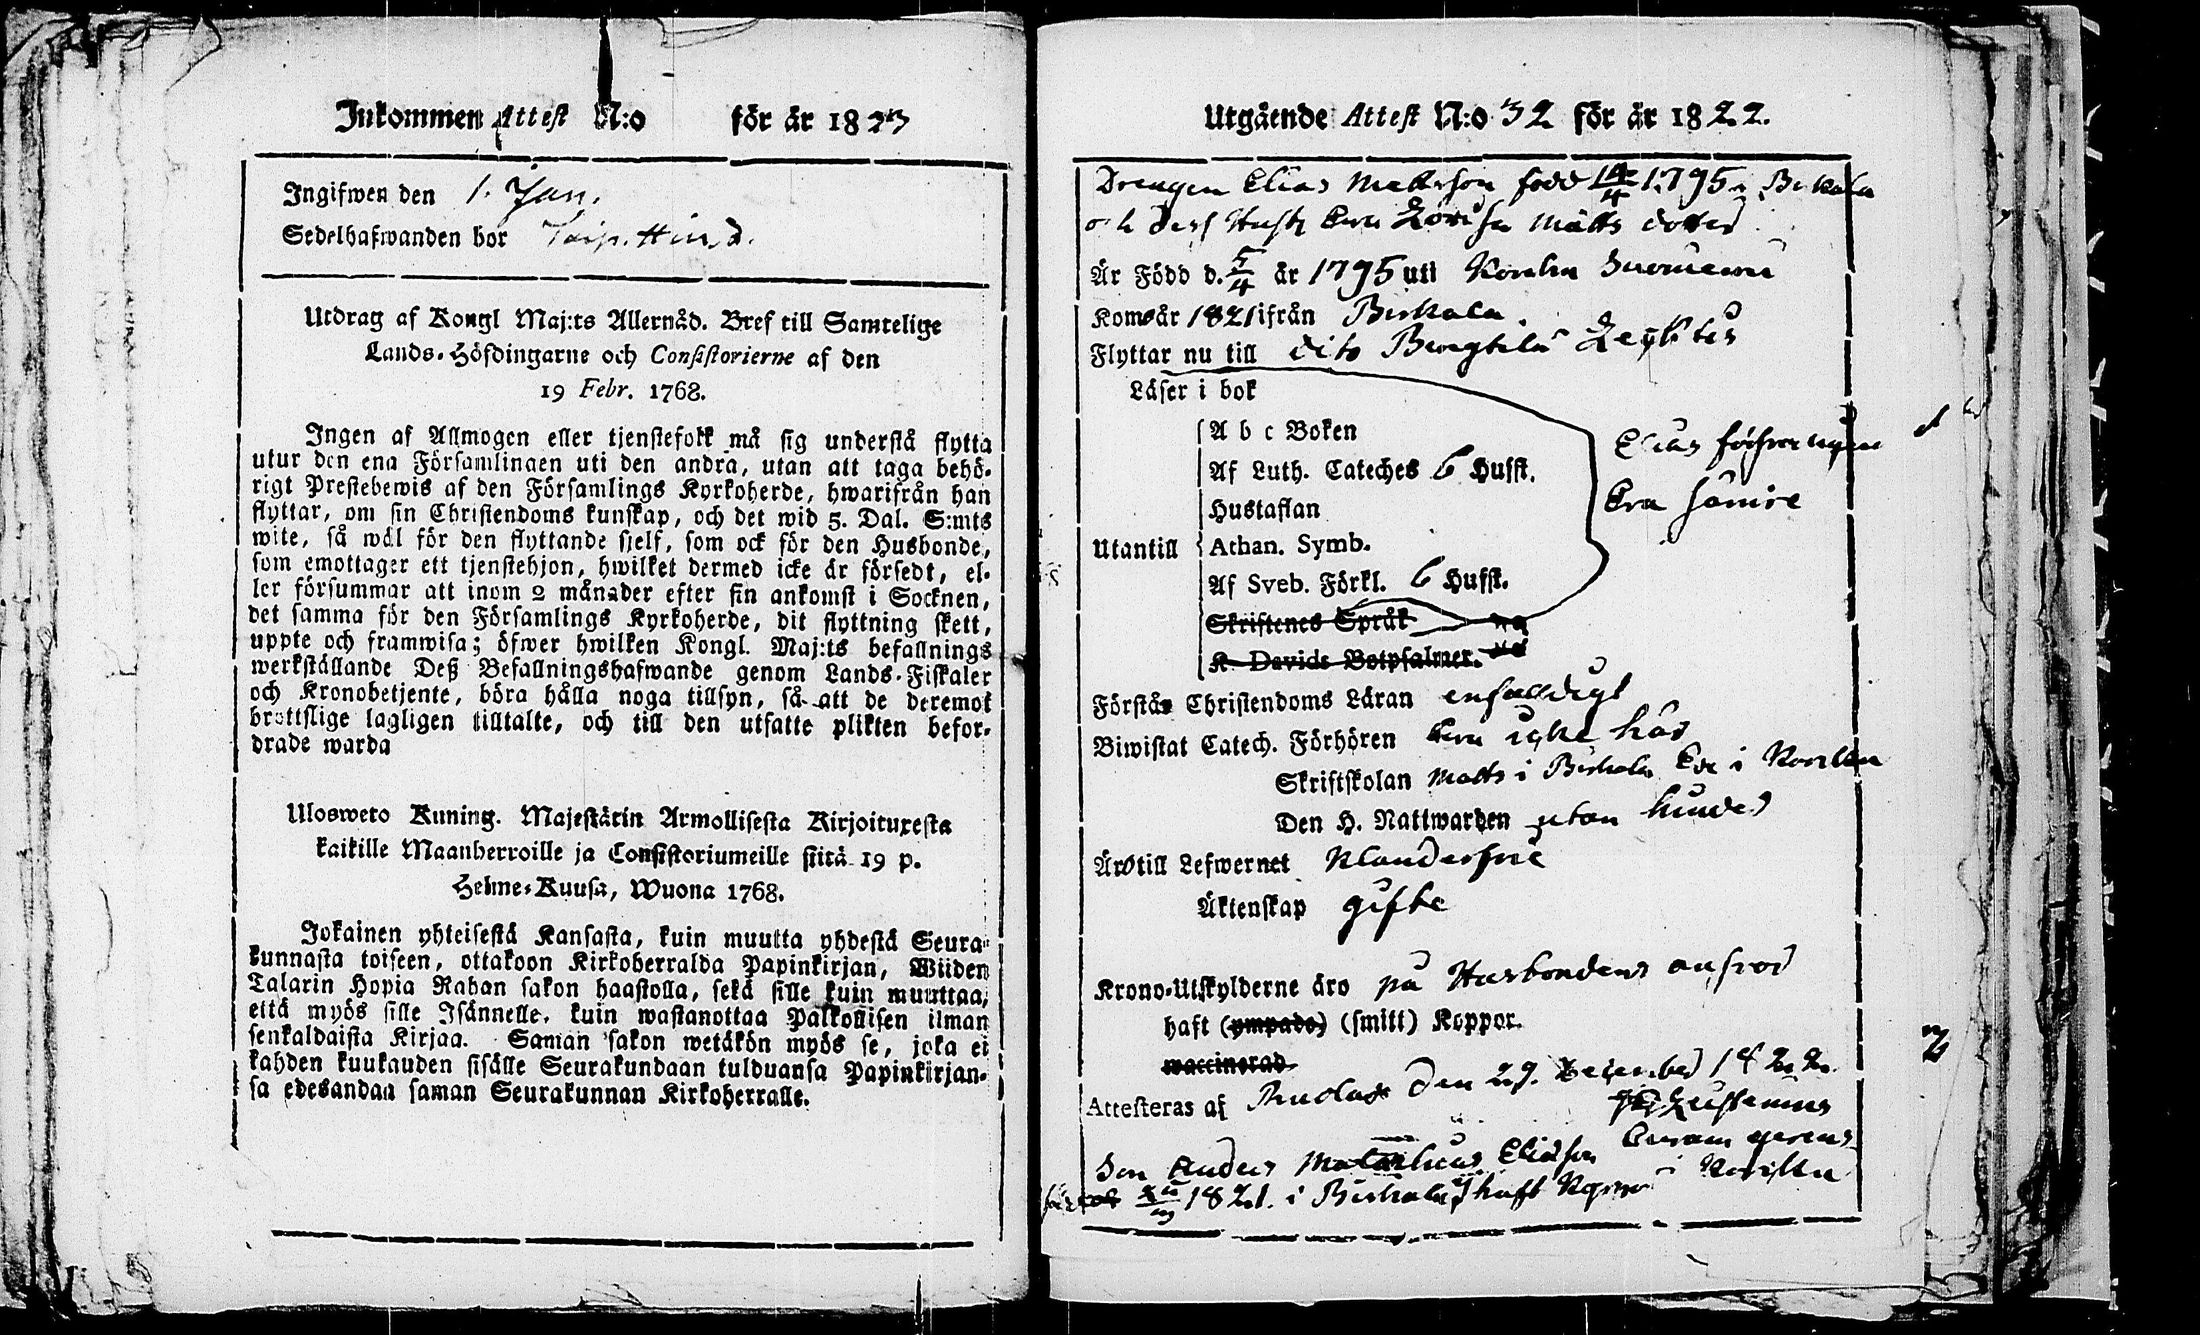 Inkommen Attest N:o för år 1823
Ingifwen den 1. Jan.
Sedelhafwanden bor
Utdrag af Kongl Maj:ts Allernåd. Bref till Samtelige
Lands-Höfdingarne och Consistorierne af den
19 Febr. 1768.
Ingen af Allmogen eller tjenstefolk må sig understå flytta
utur den ena Församlingen uti den andra, utan att taga behö-
rigt Prestebewis af den Församlings Kyrkoherde, hwarifrån han
flyttar, om sin Christendoms kunskap, och det wid 5. Dal. S:mts
wite, så wäl för den flyttande sjelf, som ock för den Husbonde,
som emottager ett tjenstehjon, hwilket dermed icke är försedt, el-
ler försummar att inom 2 månader efter sin ankomst i Socknen,
det samma för den Församlings Kyrkoherde, dit flyttning skett,
uppte och framwisa; öfwer hwilken Kongl. Maj:ts befallnings
werkställande Deß Befallningshafwande genom Lands-Fiskaler
och Kronobetjente, böra hålla noga tillsyn, så att de deremot
brottslige lagligen tilltalte, och till den utsatte plikten befor-
drade warda
Ulosweto Kuning. Majestätin Armollisesta Kirjoituxesta
kaikille Maanherroille ja Consistoriumeille siitä 19 p.
Helme-Kuusa, Wuona 1768.
Jokainen yhteisestä Kansasta, kuin muutta yhdestä Seura-
kunnasta toiseen, ottakoon Kirkoherralda Papinkirjan, Wiiden
Talarin Hopia Rahan sakon haastolla, sekä sille kuin muuttaa,
että myös sille Isännelle, kuin wastanottaa Palkollisen ilman
senkaldaista Kirjaa. Saman sakon wetäkön myös se, joka ei
kahden kuukauden sisälle Seurakundaan tulduansa Papinkirjan-
sa edesandaa saman Seurakunnan Kirkoherralle.
Utgående Attest N:o 32 för år 1822.
Drengen Elias Mattsson född 1795 i Birkala
och dess Hustr Eva Lovisa Matts dotter
Är Född d. 5/4 år 1795 uti
Kom år 1821 ifrån Birkala
Flyttar nu till dito
Läser i bok
A b c Boken
Af Luth. Cateches 6 Hufst.
Hustaflan
Utantill Athan. Symb.
Af Sveb. Förkl. 6 Hufst.
Skriftenes Språk
K. Davids Botpsalmer.
Elias
Eva sämre
Förstår Christendoms Läran enfalldigt
Biwistat Catech. Förhören Eva icke här
Skriftskolan Matts i Birkala Eva i
Den H. Nattwarden utan hinder
Äro till Lefwernet Klanderfrie
Äktenskap gifte
Krono-Utskylderne äro på Husbondens answar
haft (ympade) (smitt) Koppor.
waccinerad
Attesteras af den 29. December 1822.
Son Anders Eliasson
1821. i Birkala haft